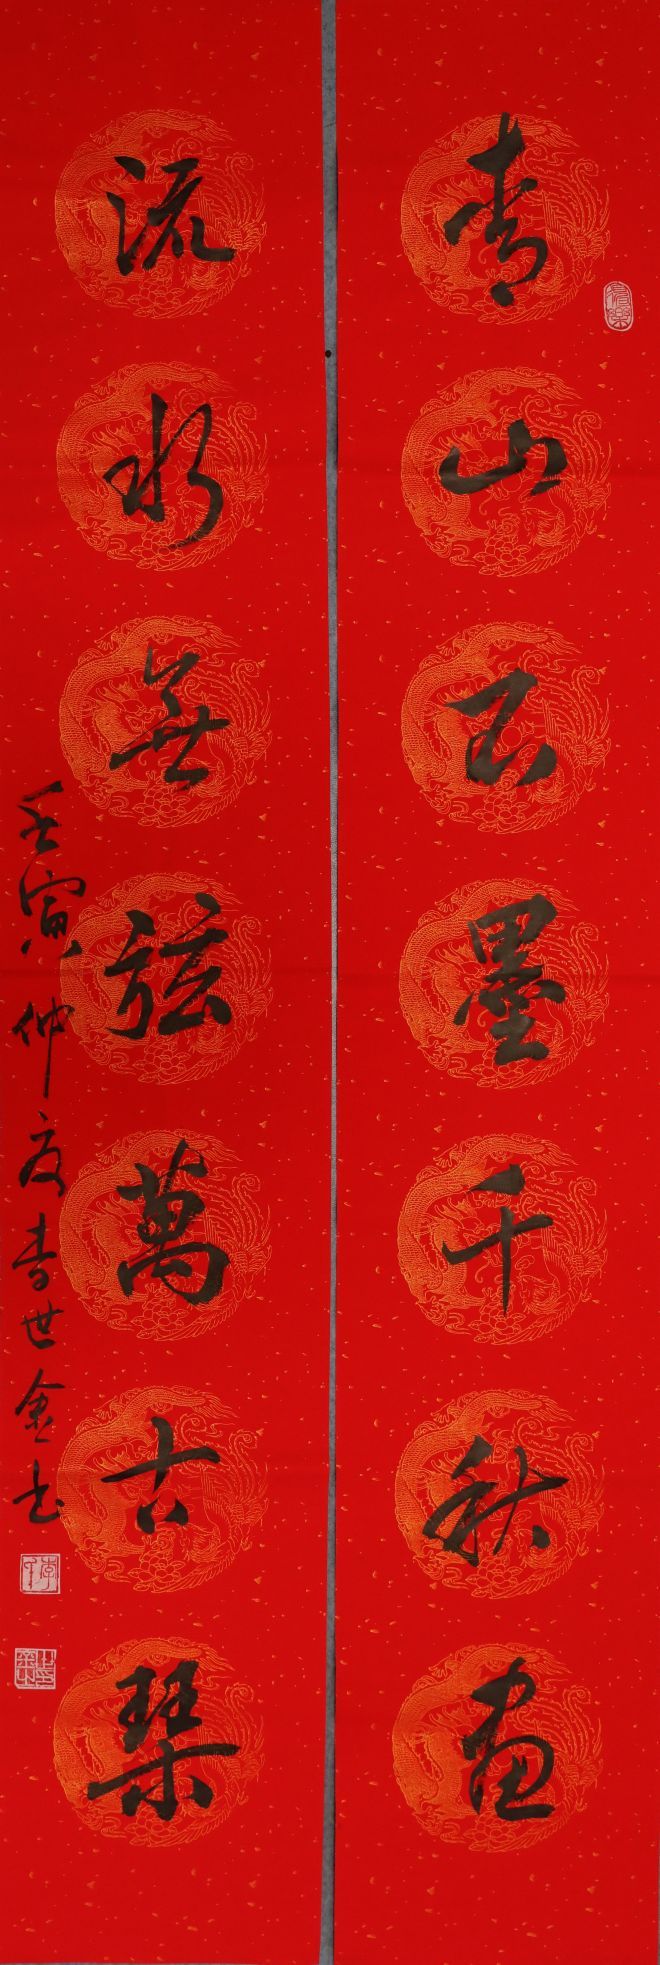 青山不墨千秋畫
流水無弦萬古琴
壬寅仲夏李世金书